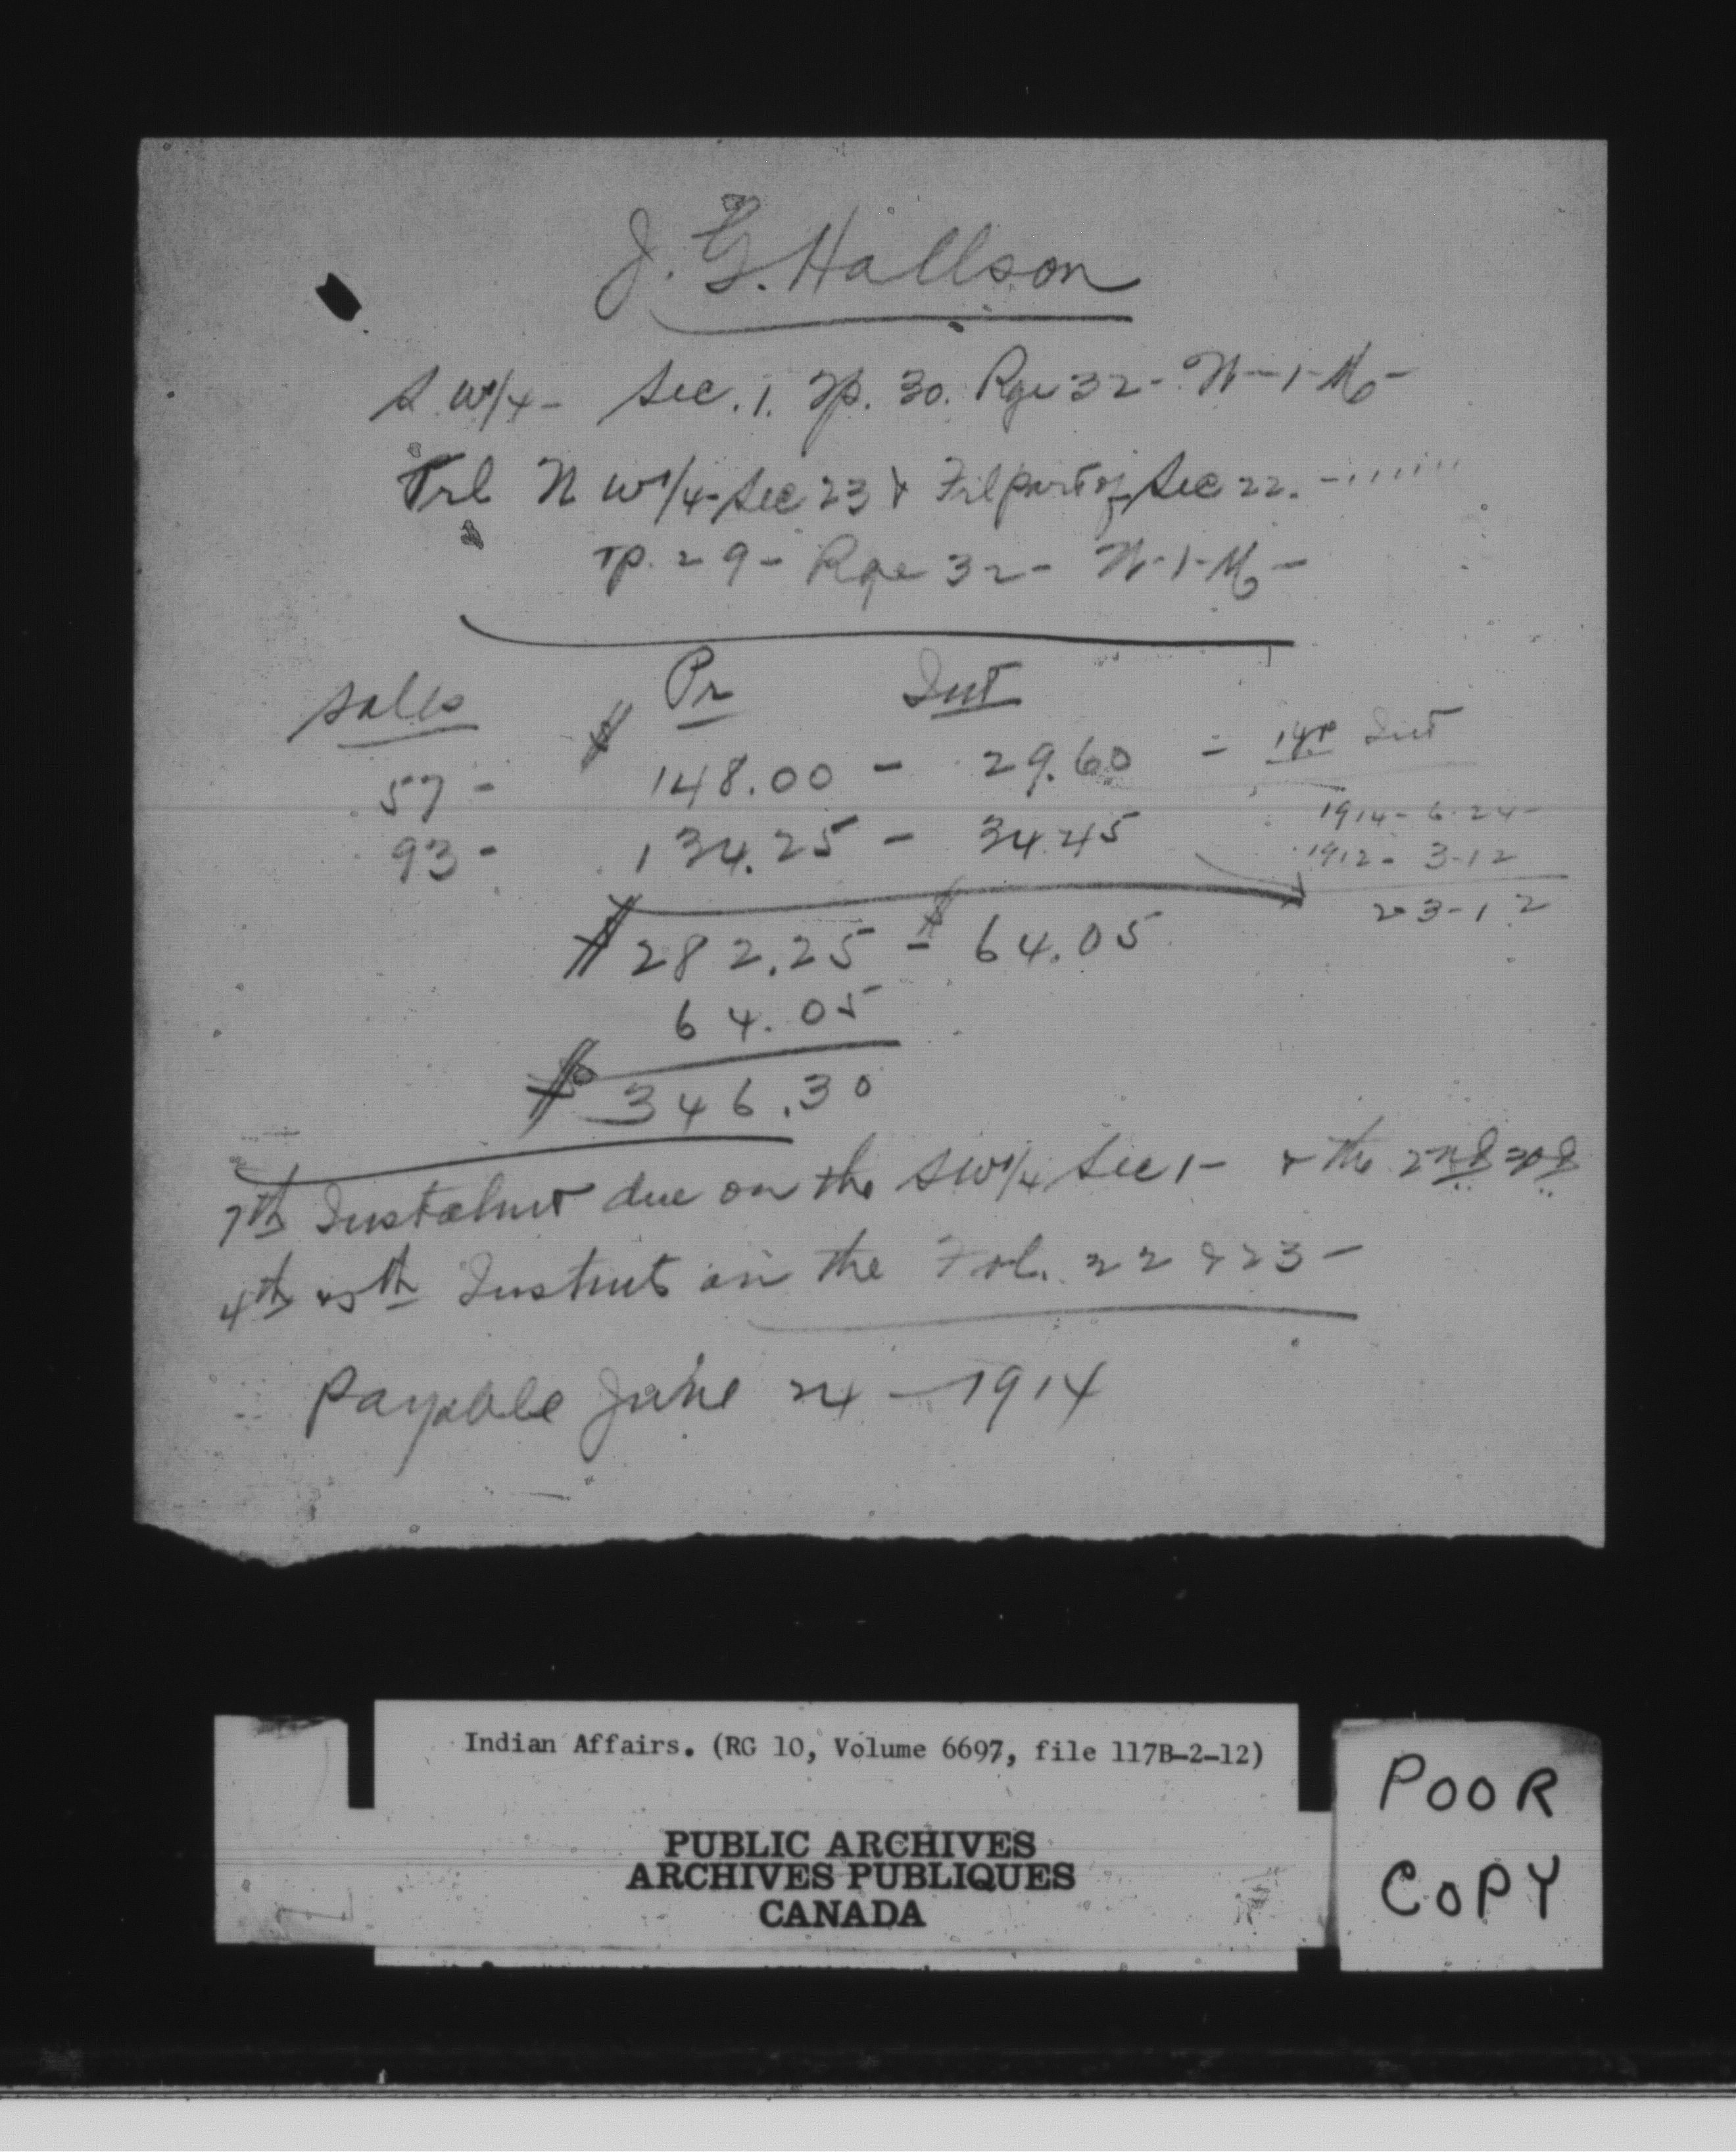 J. G. Hallson
S. W 1/4 - Sec. 1. Tp. 30. Rge 32 - W - 1 - M -
Frl N W 1/4 - Sec 23 & Frl part of Sec 22. -
Tp. 29 - Rge 32 - W - 1 - M -
Sales Pr Int
57 - $ 148.00 - 29.60 - Int
93 - 134.25 - 34.45
1914 - 6 - 24 -
1912 - 3 - 12
2 - 3 - 12
$ 282.25 - $ 64.05
64.05
$ 346.30
7th Instalmt due on the S W 1/4 Sec 1 - & the 2nd 3rd
4th & 5th Instmts on the Frl. 22 & 23 -
Payable June 24 - 1914
Indian Affairs. (RG 10, Volume 6697, file 117B-2-12)
PUBLIC ARCHIVES
ARCHIVES PUBLIQUES
CANADA
POOR
COPY